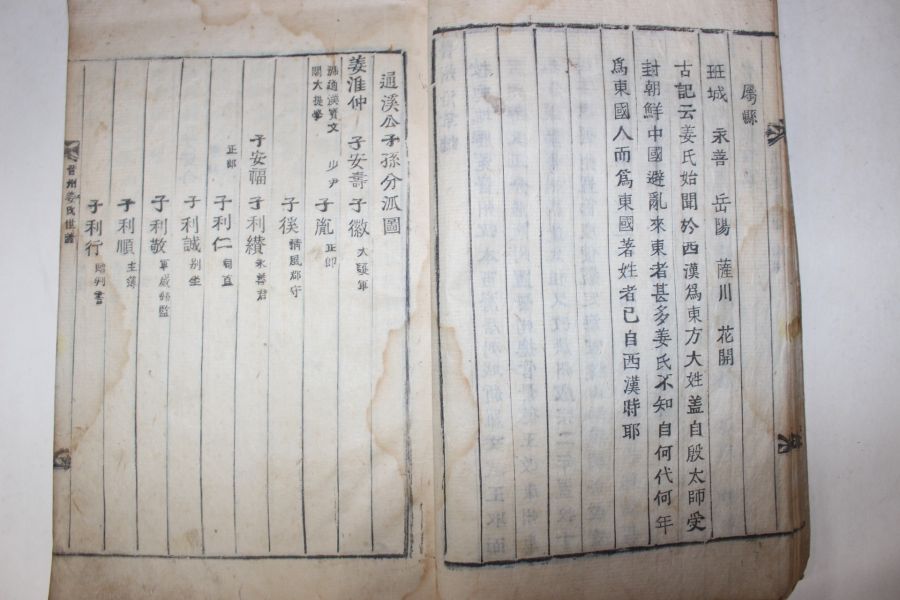 屬縣
班城 永善 岳陽 薩川 花開
古記云姜氏始聞於西漢爲東方大姓盖自殷太師受
封朝鮮中國避亂來東者甚多姜氏不知自何代何年
爲東國人而爲東國著姓者已自西漢時耶
通溪公子孫分派圖
姜淮仲 子安壽 子徽 大護軍
號通溪寶文
閣大提學
少尹
子胤 正郎
子㬥 淸風郡守
子安福 子利纉 永善君
正郎
子利仁 司直
子利誠 別坐
子利敬 軍威縣監
子利順 主簿
子利行 贈判書
晉州姜氏世譜